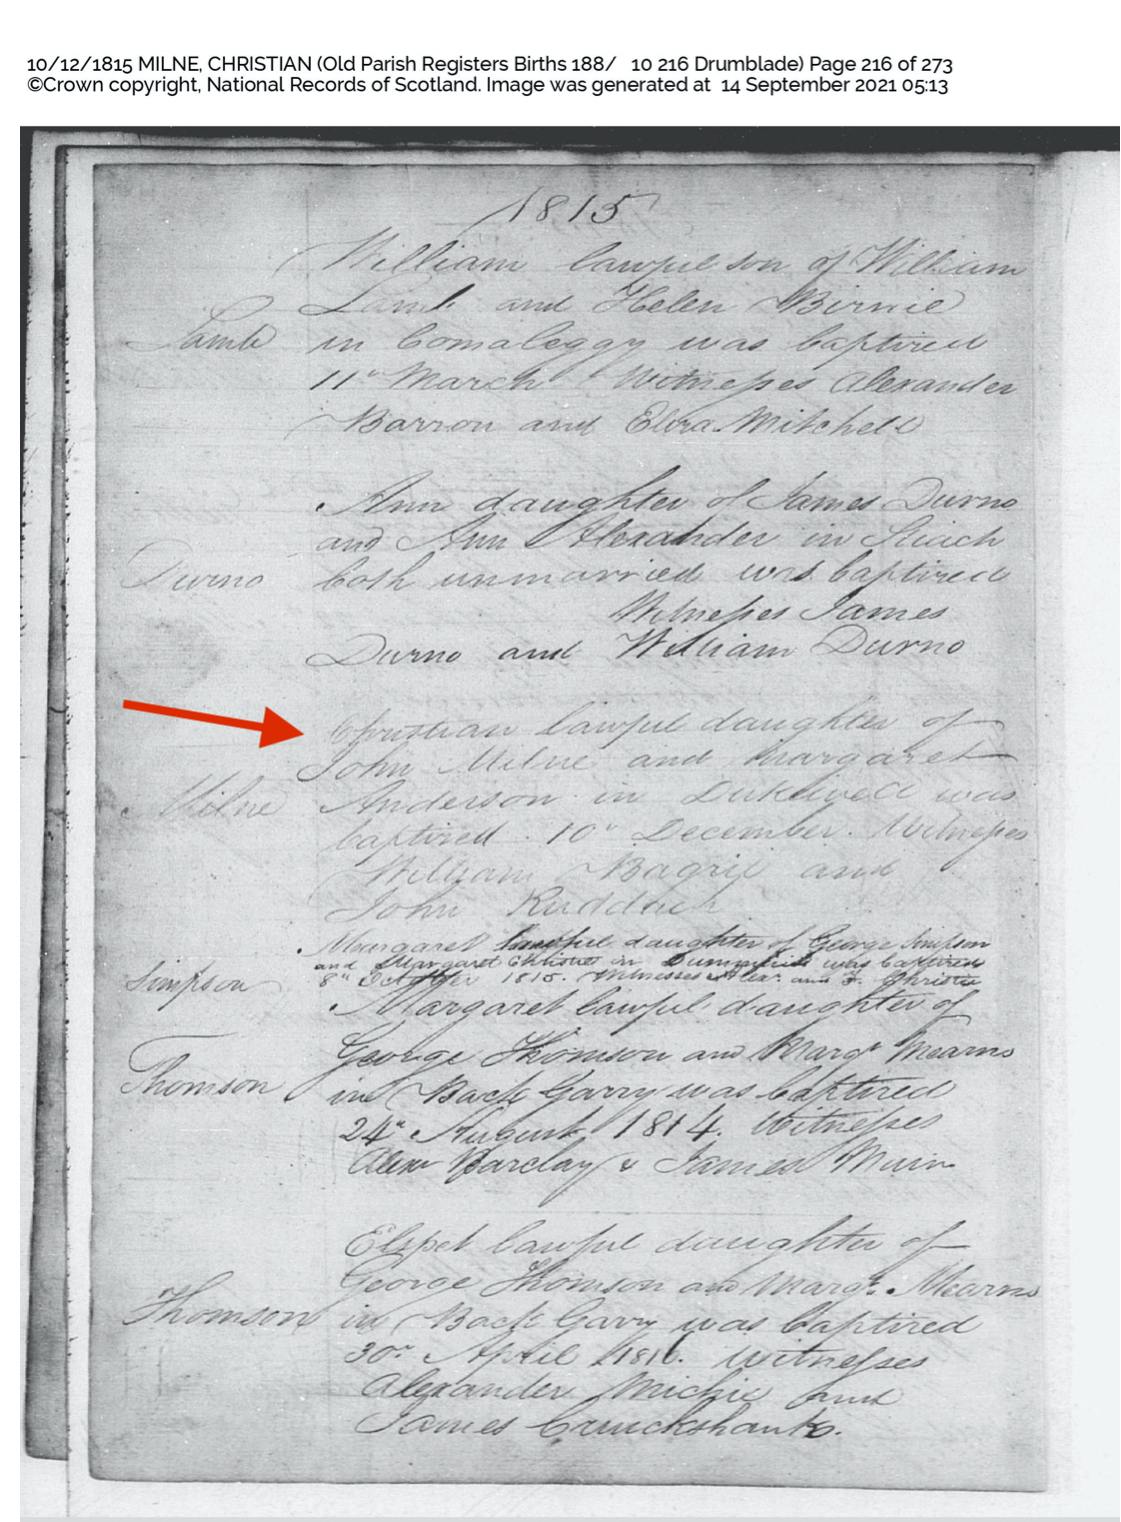 10/12/1815 MILNE, CHRISTIAN (Old Parish Registers Births 188/ 10 216 Drumblade) Page 216 of 273
©Crown copyright, National Records of Scotland. Image was generated at 14 September 2021 05:13
1815
William lawful son of William
Lamb and Helen Birnie
Lamb in Comaleggy was baptized
11th March Witnesses Alexander
Barron and Eliza Mitchell
Ann daughter of James Durno
and Ann Alexander in Sliach
Durno both unmarried was baptized
Witnesses James
Durno and William Durno
Christian lawful daughter of
John Milne and Margaret
Milne Anderson in was
baptized 10th December. Witnesses
William Bagrie and
John Ruddach
Margaret lawful daughter of George Simpson
and Margaret Christie in was baptized
Simpson 8th October 1815. Witnesses Alexr. and J. Christie
Margaret lawful daughter of
George Thomson and Margt Mearns
Thomson in Back Garry was baptized
24th August 1814. Witnesses
Alexr Barclay & James Muir
Elspet lawful daughter of
George Thomson and Margt. Mearns
Thomson in Back Garry was baptized
30th April 1816. Witnesses
Alexander Michie and
James Cruickshanks.